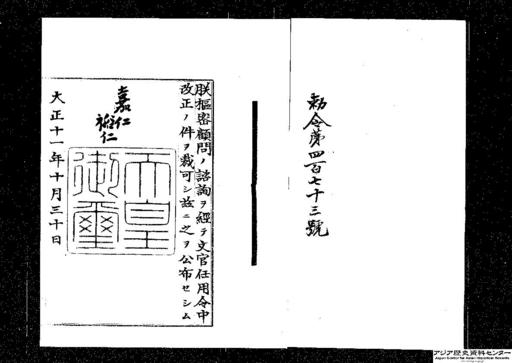 勅令第四百七十三號
朕樞密顧問ノ諮詢ヲ經テ文官任用令中
改正ノ件ヲ裁可シ茲ニ之ヲ公布セシム
嘉仁
裕仁
天皇
御璽
大正十一年十月三十日
アジア歴史資料センター
Japan Center for Asian Historical Records